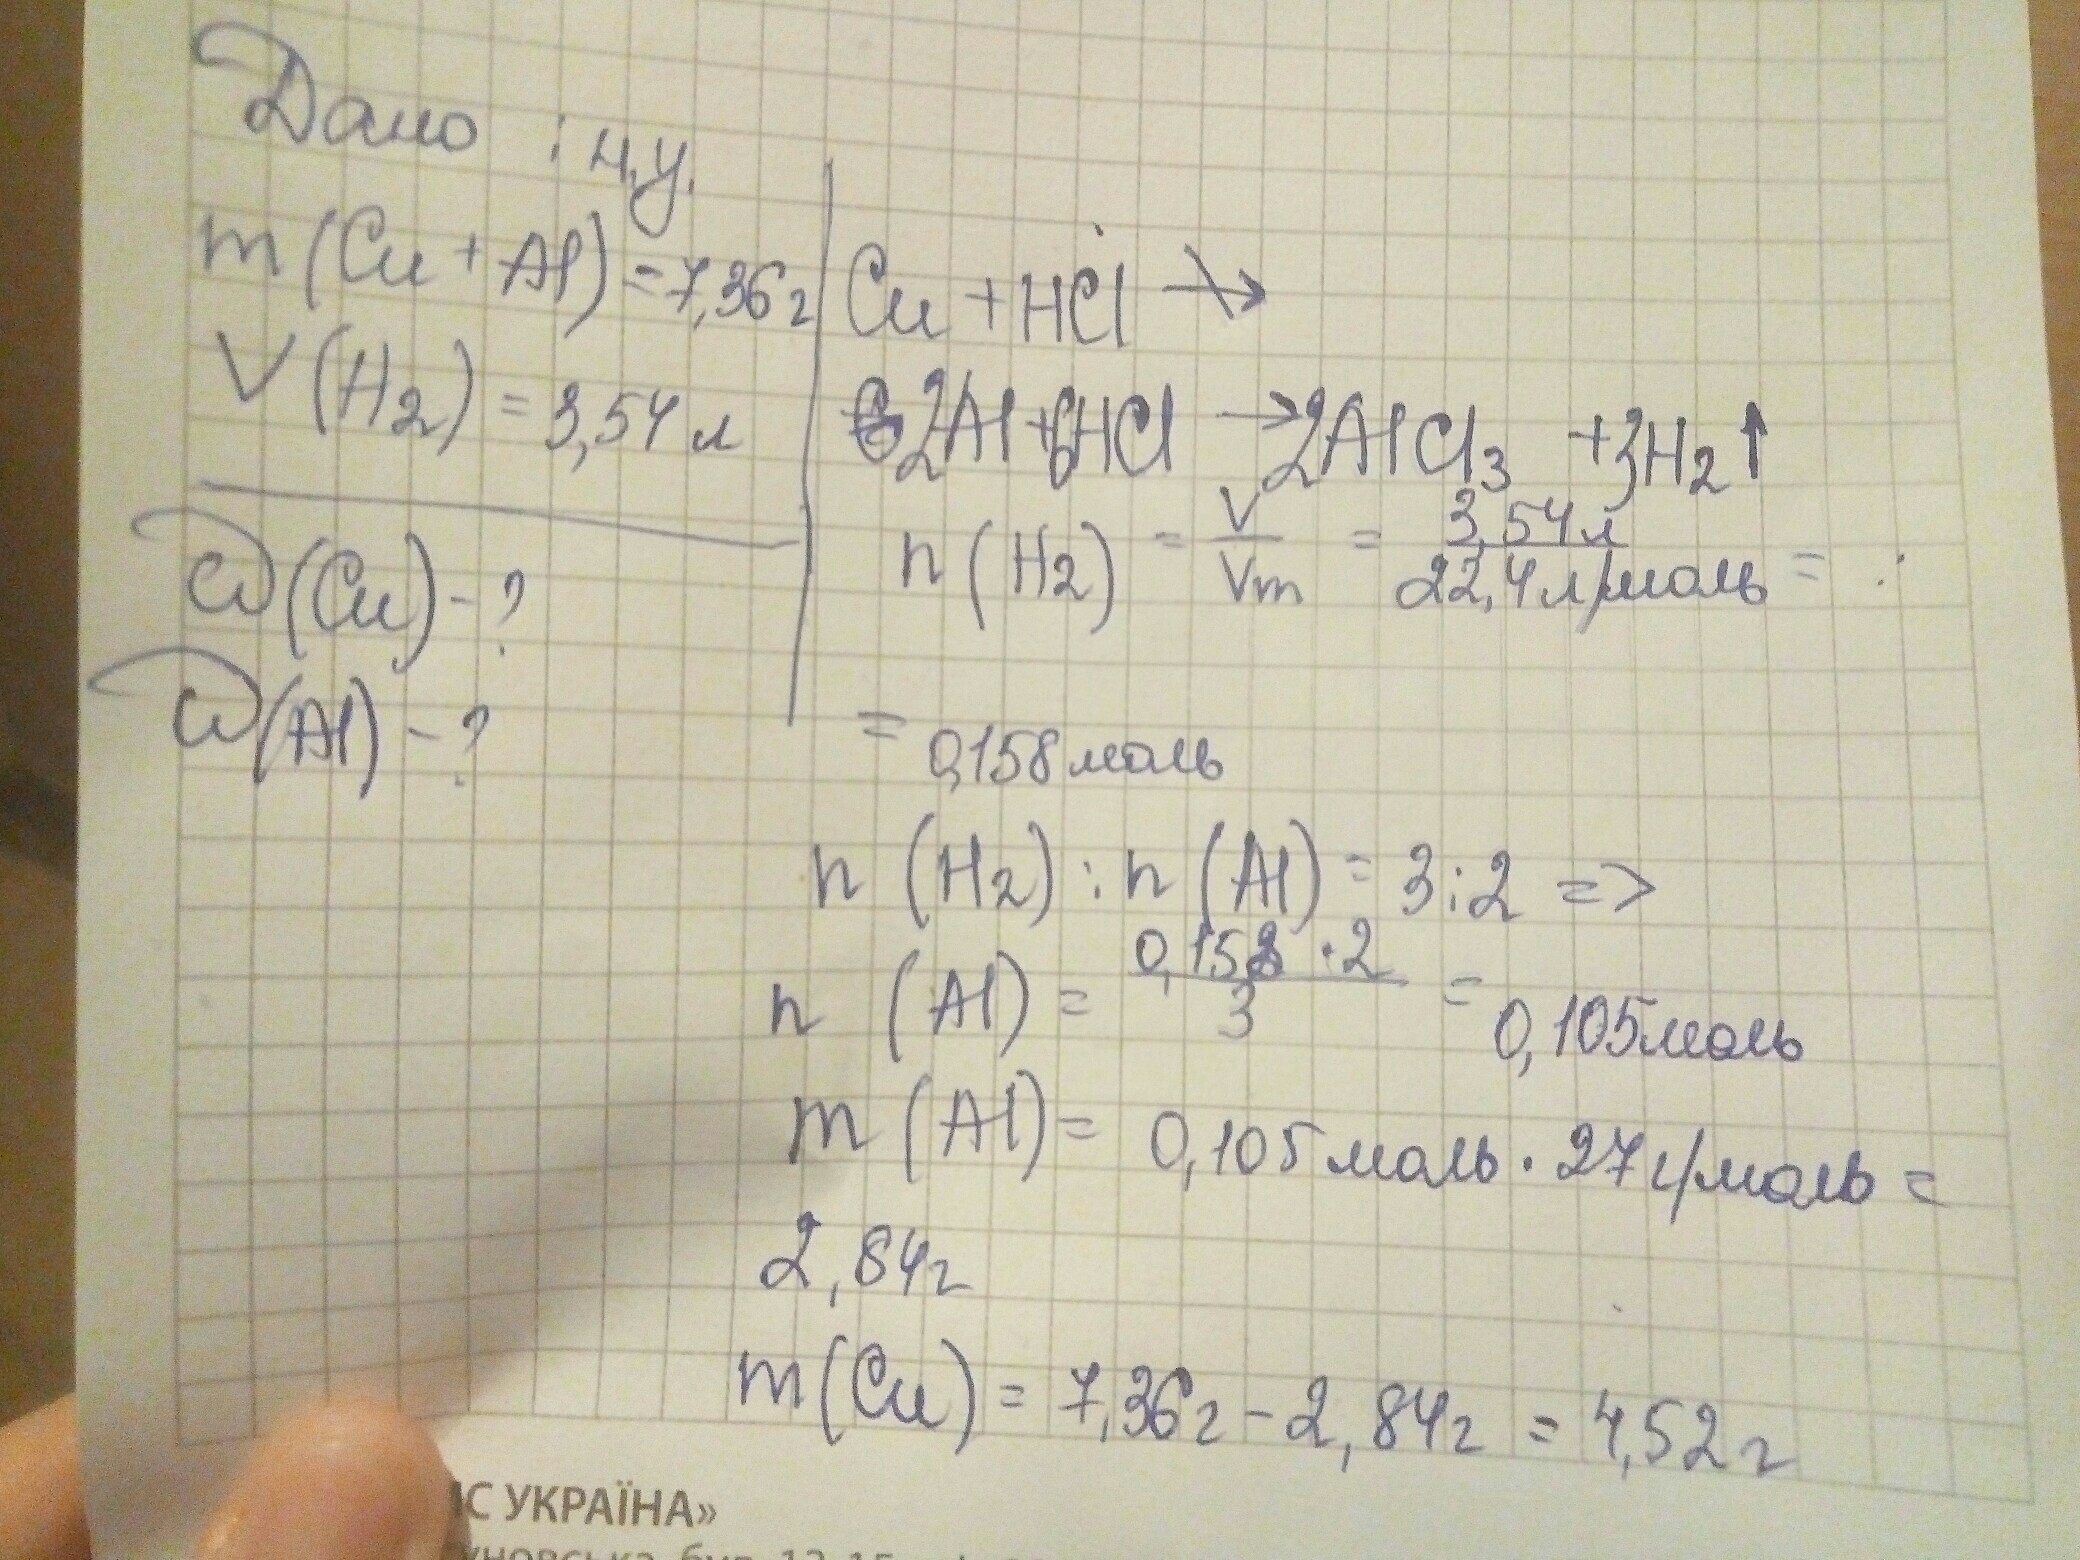 Дано : н.у.
m(Cu + Al) = 7,36 г
V(H2) = 3,54 л
W(Cu) - ?
W(Al) - ?
Cu + HCl ↛
2Al + 6HCl → 2AlCl3 + 3H2↑
n(H2) = V/Vm = 3,54 л/22,4 л/моль =
= 0,158 моль
n(H2) : n(Al) = 3:2 =>
n(Al) = 0,158 · 2/3 = 0,105 моль
m(Al) = 0,105 моль · 27 г/моль =
2,84 г
m(Cu) = 7,36 г - 2,84 г = 4,52 г
УКРАЇНА»